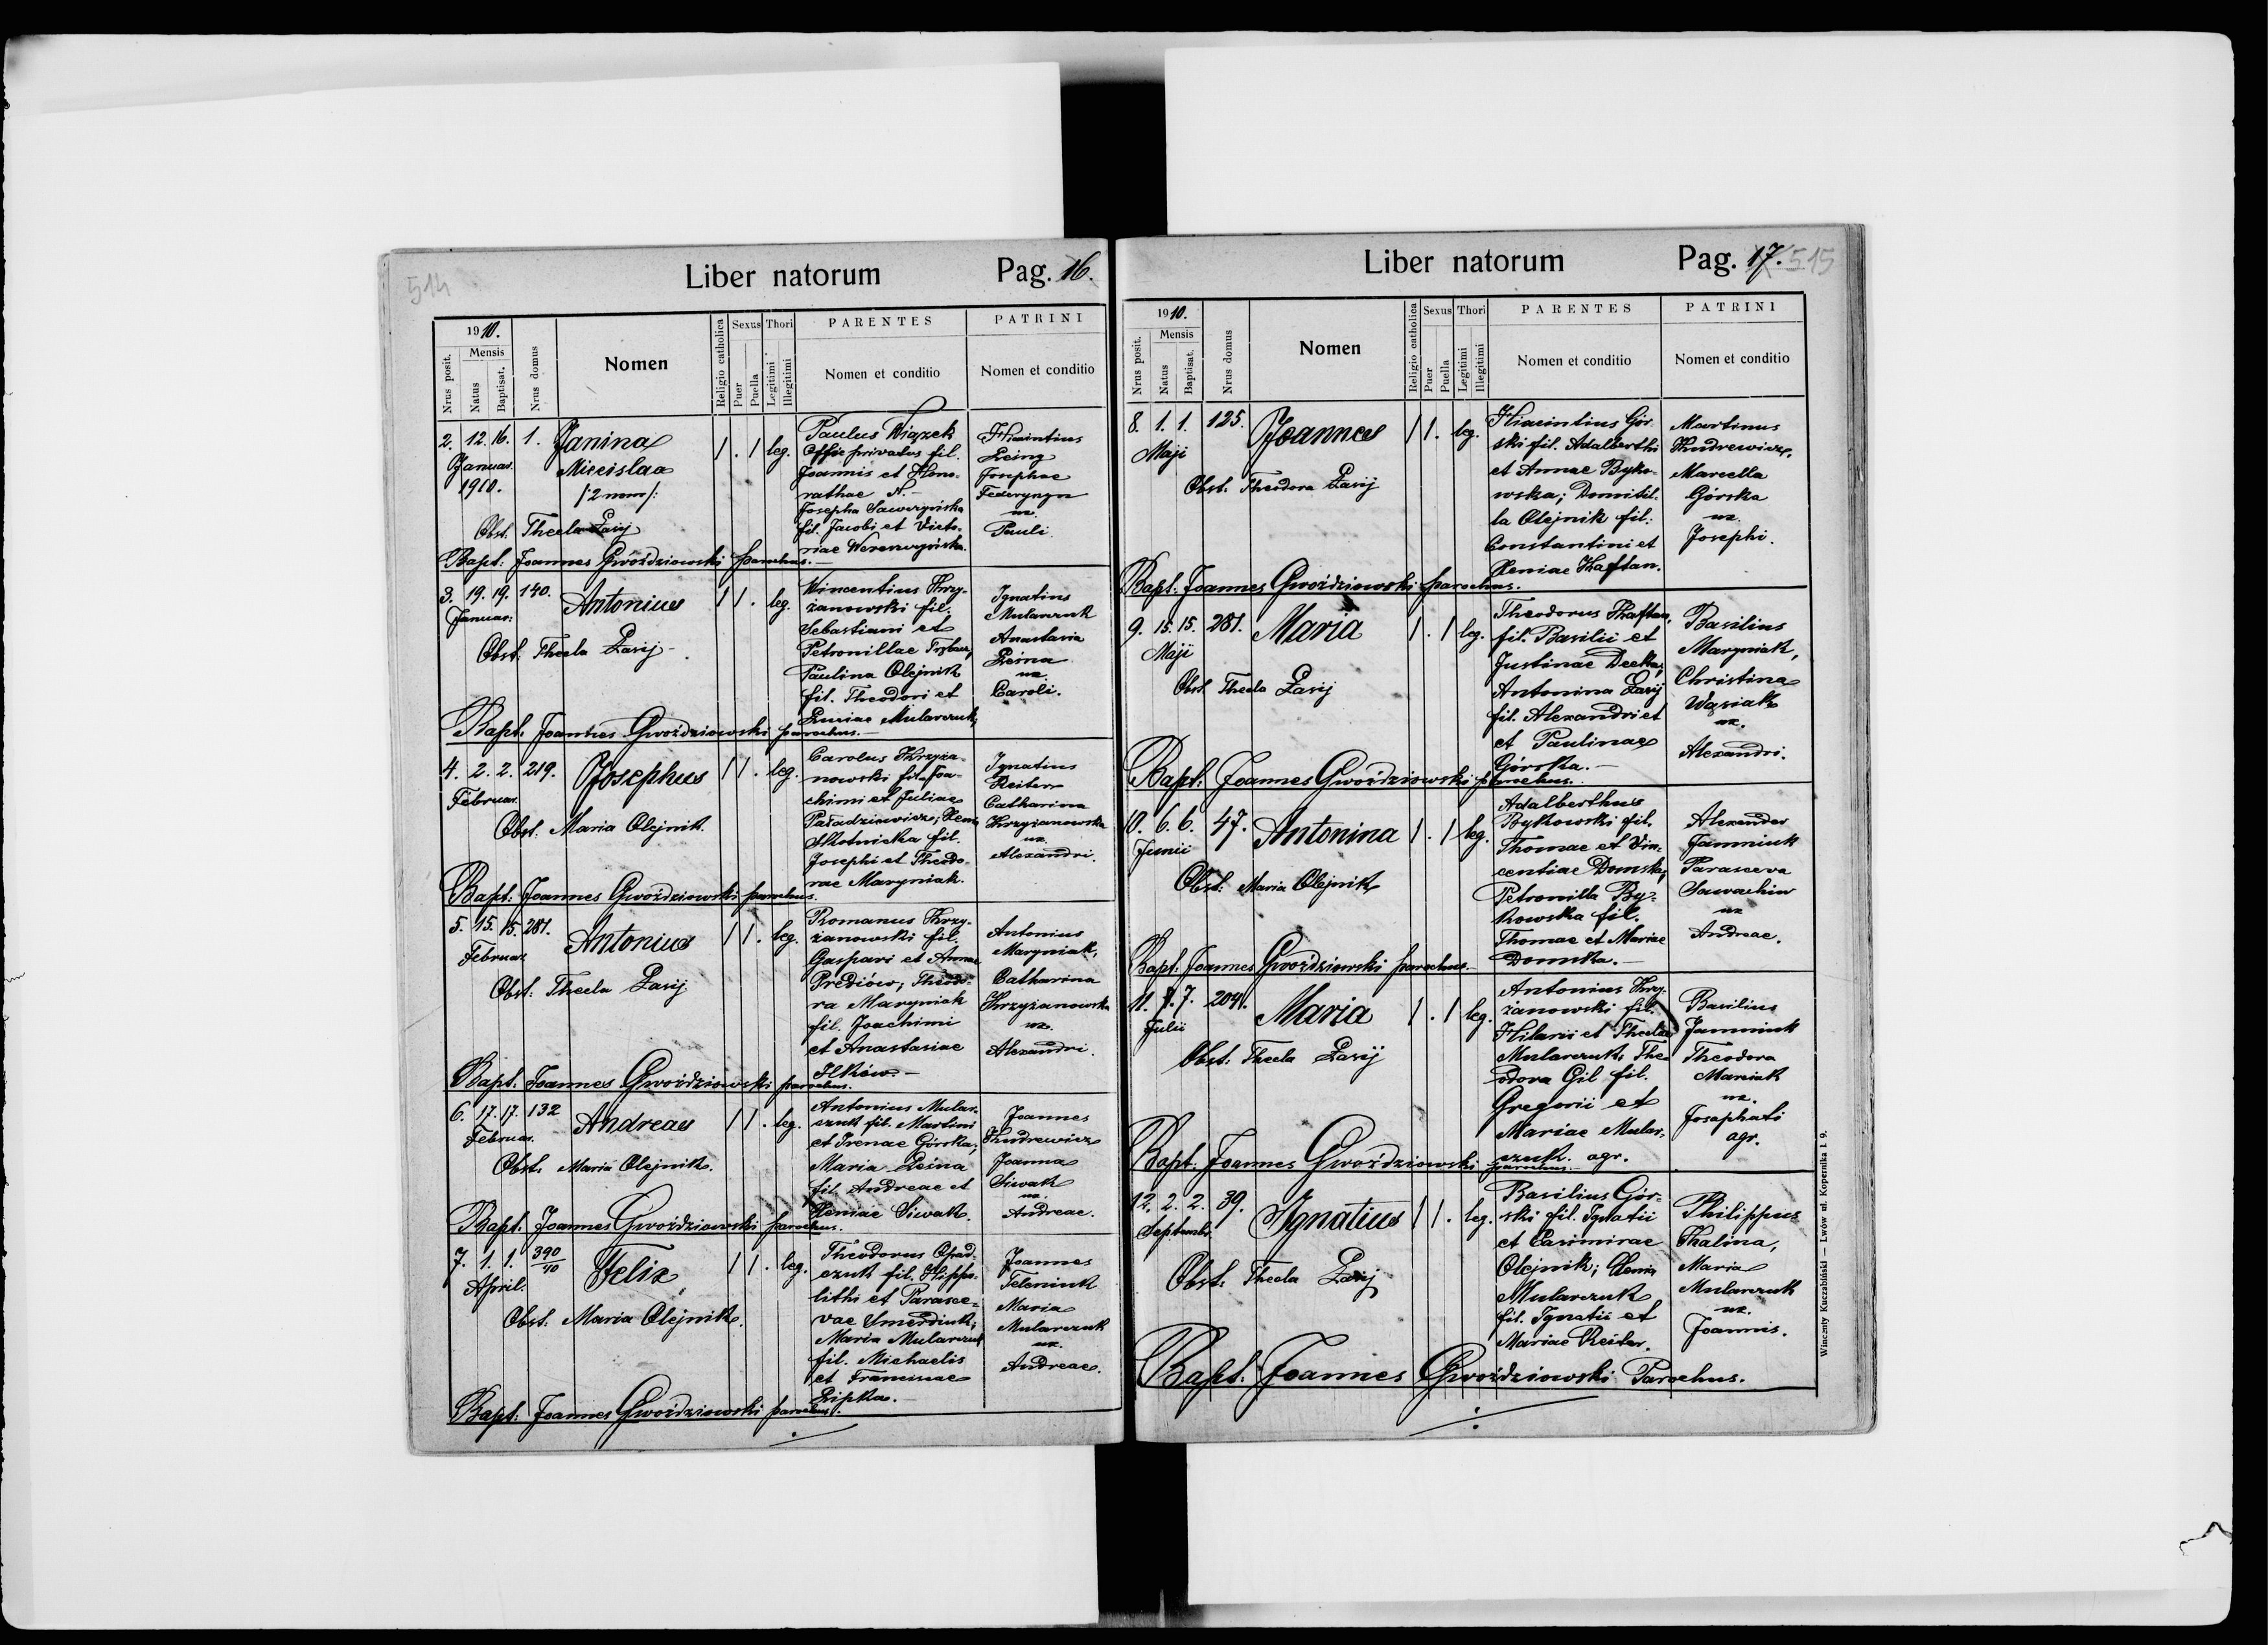 514
Liber natorum Pag. 16.
1910.
Nrus posit.
Mensis
Natus
Baptisat.
Nrus domus
Nomen
Religio catholica
Sexus
Puer
Puella
Thori
Legitimi
Illegitimi
PARENTES
Nomen et conditio
PATRINI
Nomen et conditio
2. 12. 16. 1.
Januar.
1910.
Janina
Miecislaa
/:2 nom:/
1 . 1 leg.
Obst. Thecla Zasij
Paulus Wiązek
Offic privatus fil.
Joannis et Hono-
rathae N.-
Josepha
fil. Jacobi et Victo-
riae
Hiacintius
Josephae
ux.
Pauli.
Bapt: Joannes Gwoździowski parochus.-
3. 19. 19. 140.
Januar.
Antonius
1 1 . leg.
Obst. Thecla Zasij-
Wincentius Krzy-
żanowski fil.
Sebastiani et
Petronillae
Paulina Olejnik
fil. Theodori et
Luciae Mularczuk;
Ignatius
Mularczuk
Anastasia
Leśna
ux.
Caroli.
Bapt. Joannes Gwoździowski parochus.-
4. 2. 2. 219.
Februar.
Josephus
1 1 . leg.
Obst. Maria Olejnik.
Carolus Krzyża-
nowski fil. Joa-
chimi et Juliae
Paradziewicz; Xenia
Skotnicka fil.
Josephi et Theodo-
rae Maryniak.
Ignatius
Reiter
Catharina
Krzyżanowska
ux.
Alexandri.
Bapt: Joannes Gwoździowski parochus.
5. 15. 15. 281.
Februar.
Antonius
1 1 . leg.
Obst: Thecla Zasij
Romanus Krzy-
żanowski fil.
Gaspari et Annae
Theodo-
ra Maryniak
fil. Joachimi
et Anastasiae
Ilków.-
Antonius
Maryniak,
Catharina
Krzyżanowska
ux.
Alexandri.
Bapt. Joannes Gwoździowski parochus.
6. 17. 17. 132
Februar.
Andreas
1 1 . leg.
Obst. Maria Olejnik.
Antonius Mular-
czuk fil. Martini
et Irenae Górska,
Maria Leśna
fil. Andreae et
Xeniae Siwak.
Joannes
Kudrewicz
Joanna
Siwak
ux.
Andreae.
Bapt. Joannes Gwoździowski parochus.
7. 1. 1. 390/40
April.
Felix
1 1 . leg.
Obst. Maria Olejnik.
Theodorus Opad-
czuk fil. Hippo-
lithi et Parasce-
vae Smerdiuk;
Maria Mularczuk
fil. Michaelis
et Franciscae
Lipka.
Joannes
Maria
Mularczuk
ux.
Andreae.
Bapt: Joannes Gwoździowski parochus.
Liber natorum Pag. 17. 515
1910.
Nrus posit.
Mensis
Natus
Baptisat.
Nrus domus
Nomen
Religio catholica
Sexus
Puer
Puella
Thori
Legitimi
Illegitimi
PARENTES
Nomen et conditio
PATRINI
Nomen et conditio
8. 1. 1. 125.
Maji
Joannes
1 1 . leg.
Obst. Theodora Zasij
Hiacintius Gór-
ski fil. Adalberthi
et Annae Byko-
wska; Domitil-
la Olejnik fil:
Constantini et
Xeniae Kaftan.
Martinus
Kudrewicz,
Marcella
Górska
ux.
Josephi.
Bapt. Joannes Gwoździowski parochus.
9. 15. 15. 281.
Maji
Maria
1 . 1 leg.
Obst Thecla Zasij
Theodorus Kaftan,
fil. Basilii et
Justinae
Antonina Zasij
fil. Alexandri et
et Paulinae
Górska.-
Basilius
Maryniak,
Christina
Wąsiak
ux.
Alexandri.
Bapt. Joannes Gwoździowski parochus.
10. 6. 6. 47.
Junii
Antonina
1 . 1 leg.
Obst: Maria Olejnik
Adalberthus
Bykowski fil.
Thomae et Vin-
centiae Domska,
Petronilla By-
kowska fil.
Thomae et Mariae
Domska.-
Alexander
Jamniuk
Parasceva
Sawachiw
ux
Andreae.
Bapt: Joannes Gwoździowski parochus.-
11. 7. 7. 204.
Julii
Maria
1 . 1 leg.
Obst. Thecla Zasij
Antonius Krzy-
żanowski fil.
Hilarii et Theclae
Mularczuk, Theo-
dora Gil fil.
Gregorii et
Mariae Mular-
czuk. agr.
Basilius
Jamniuk
Theodora
Marciak
ux.
Josaphati
agr.
Bapt: Joannes Gwoździowski parochus.-
12. 2. 2. 39.
Septembr.
Ignatius
1 1 . leg.
Obst: Thecla Zasij
Basilius Gór-
ski fil. Ignatii
et Casimirae
Olejnik; Xenia
Mularczuk
fil. Ignatii et
Mariae Reiter.
Philippus
Kalina,
Maria
Mularczuk
ux.
Joannis.
Bapt: Joannes Gwoździowski Parochus.
Winczenty Kuczabiński — Lwów ul. Kopernika l. 9.